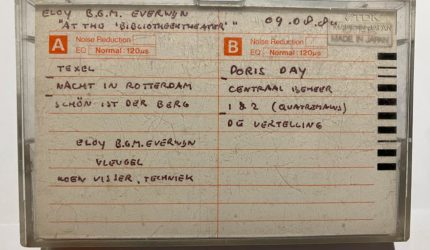 ELOY B.G.M. EVERWIJN 09.08.84
"AT THO "BIBLIOTHEEKTHEATER"
TDK
MADE IN JAPAN
A Noise Reduction
EQ Normal: 120µs
B Noise Reduction
EQ Normal: 120µs
TEXEL
NACHT IN ROTTERDAM
SCHÖN IST DER BERG
ELOY B.G.M. EVERWIJN
VLEUGEL
KOEN VISSER, TECHNIEK
DORIS DAY
CENTRAAL BEHEER
1 & 2 (QUATREMAINS)
DE VERTELLING